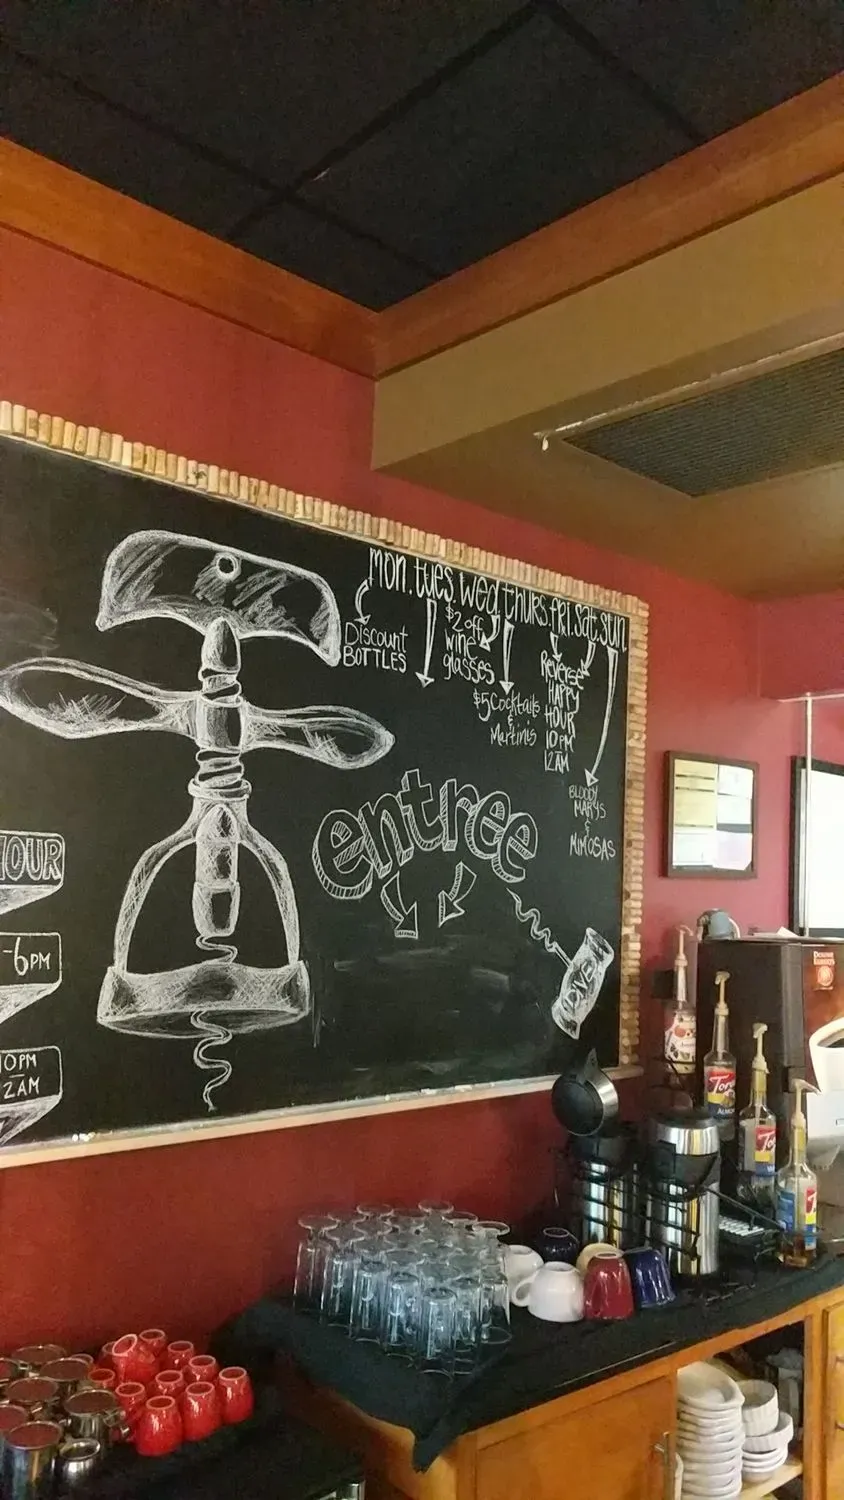 mon. tues. wed. thurs. fri. sat. sun.
Discount
BOTTLES
$2 off
wine
glasses
$5 Cocktails
&
Martinis
Reverse
HAPPY
HOUR
10PM
12AM
BLOODY
MARYS
&
MIMOSAS
entree
DIVE
HOUR
-6PM
10PM
2AM
Torani
ALMOND